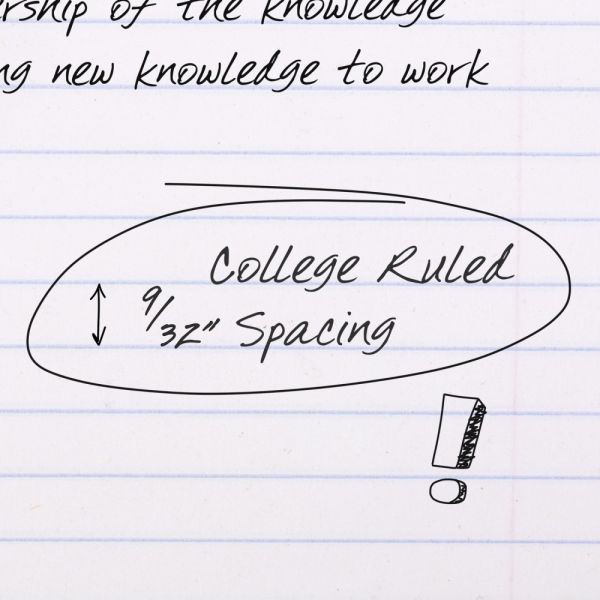 of the knowledge
new knowledge to work
College Ruled
9/32" Spacing
!